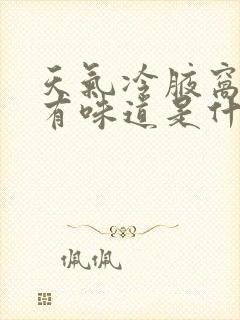 天氣冷腋窩
有味道是什
佩佩